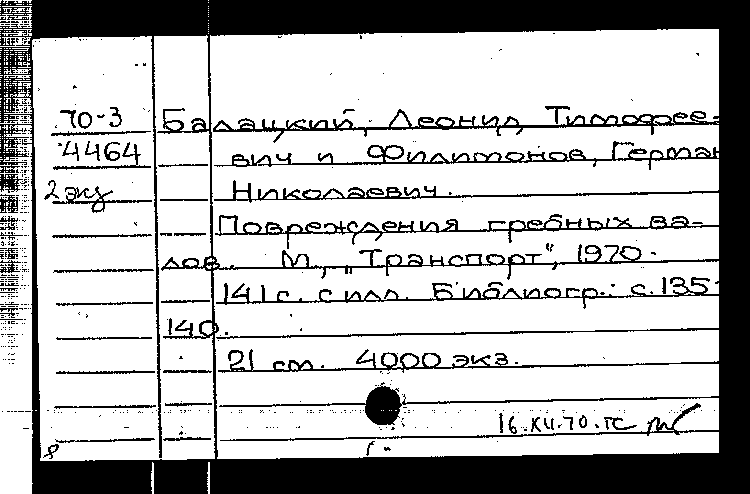 70-3 Балацкий, Леонид Тимофее-
4464 вич и Филимонов, Герман
2 экз Николаевич.
Повреждения гребных ва-
лов. М., „Транспорт", 1970.
141 с. с илл. Библиогр.: с. 135-
140.
21 см. 4000 экз.
16.XII.70.ТС
8